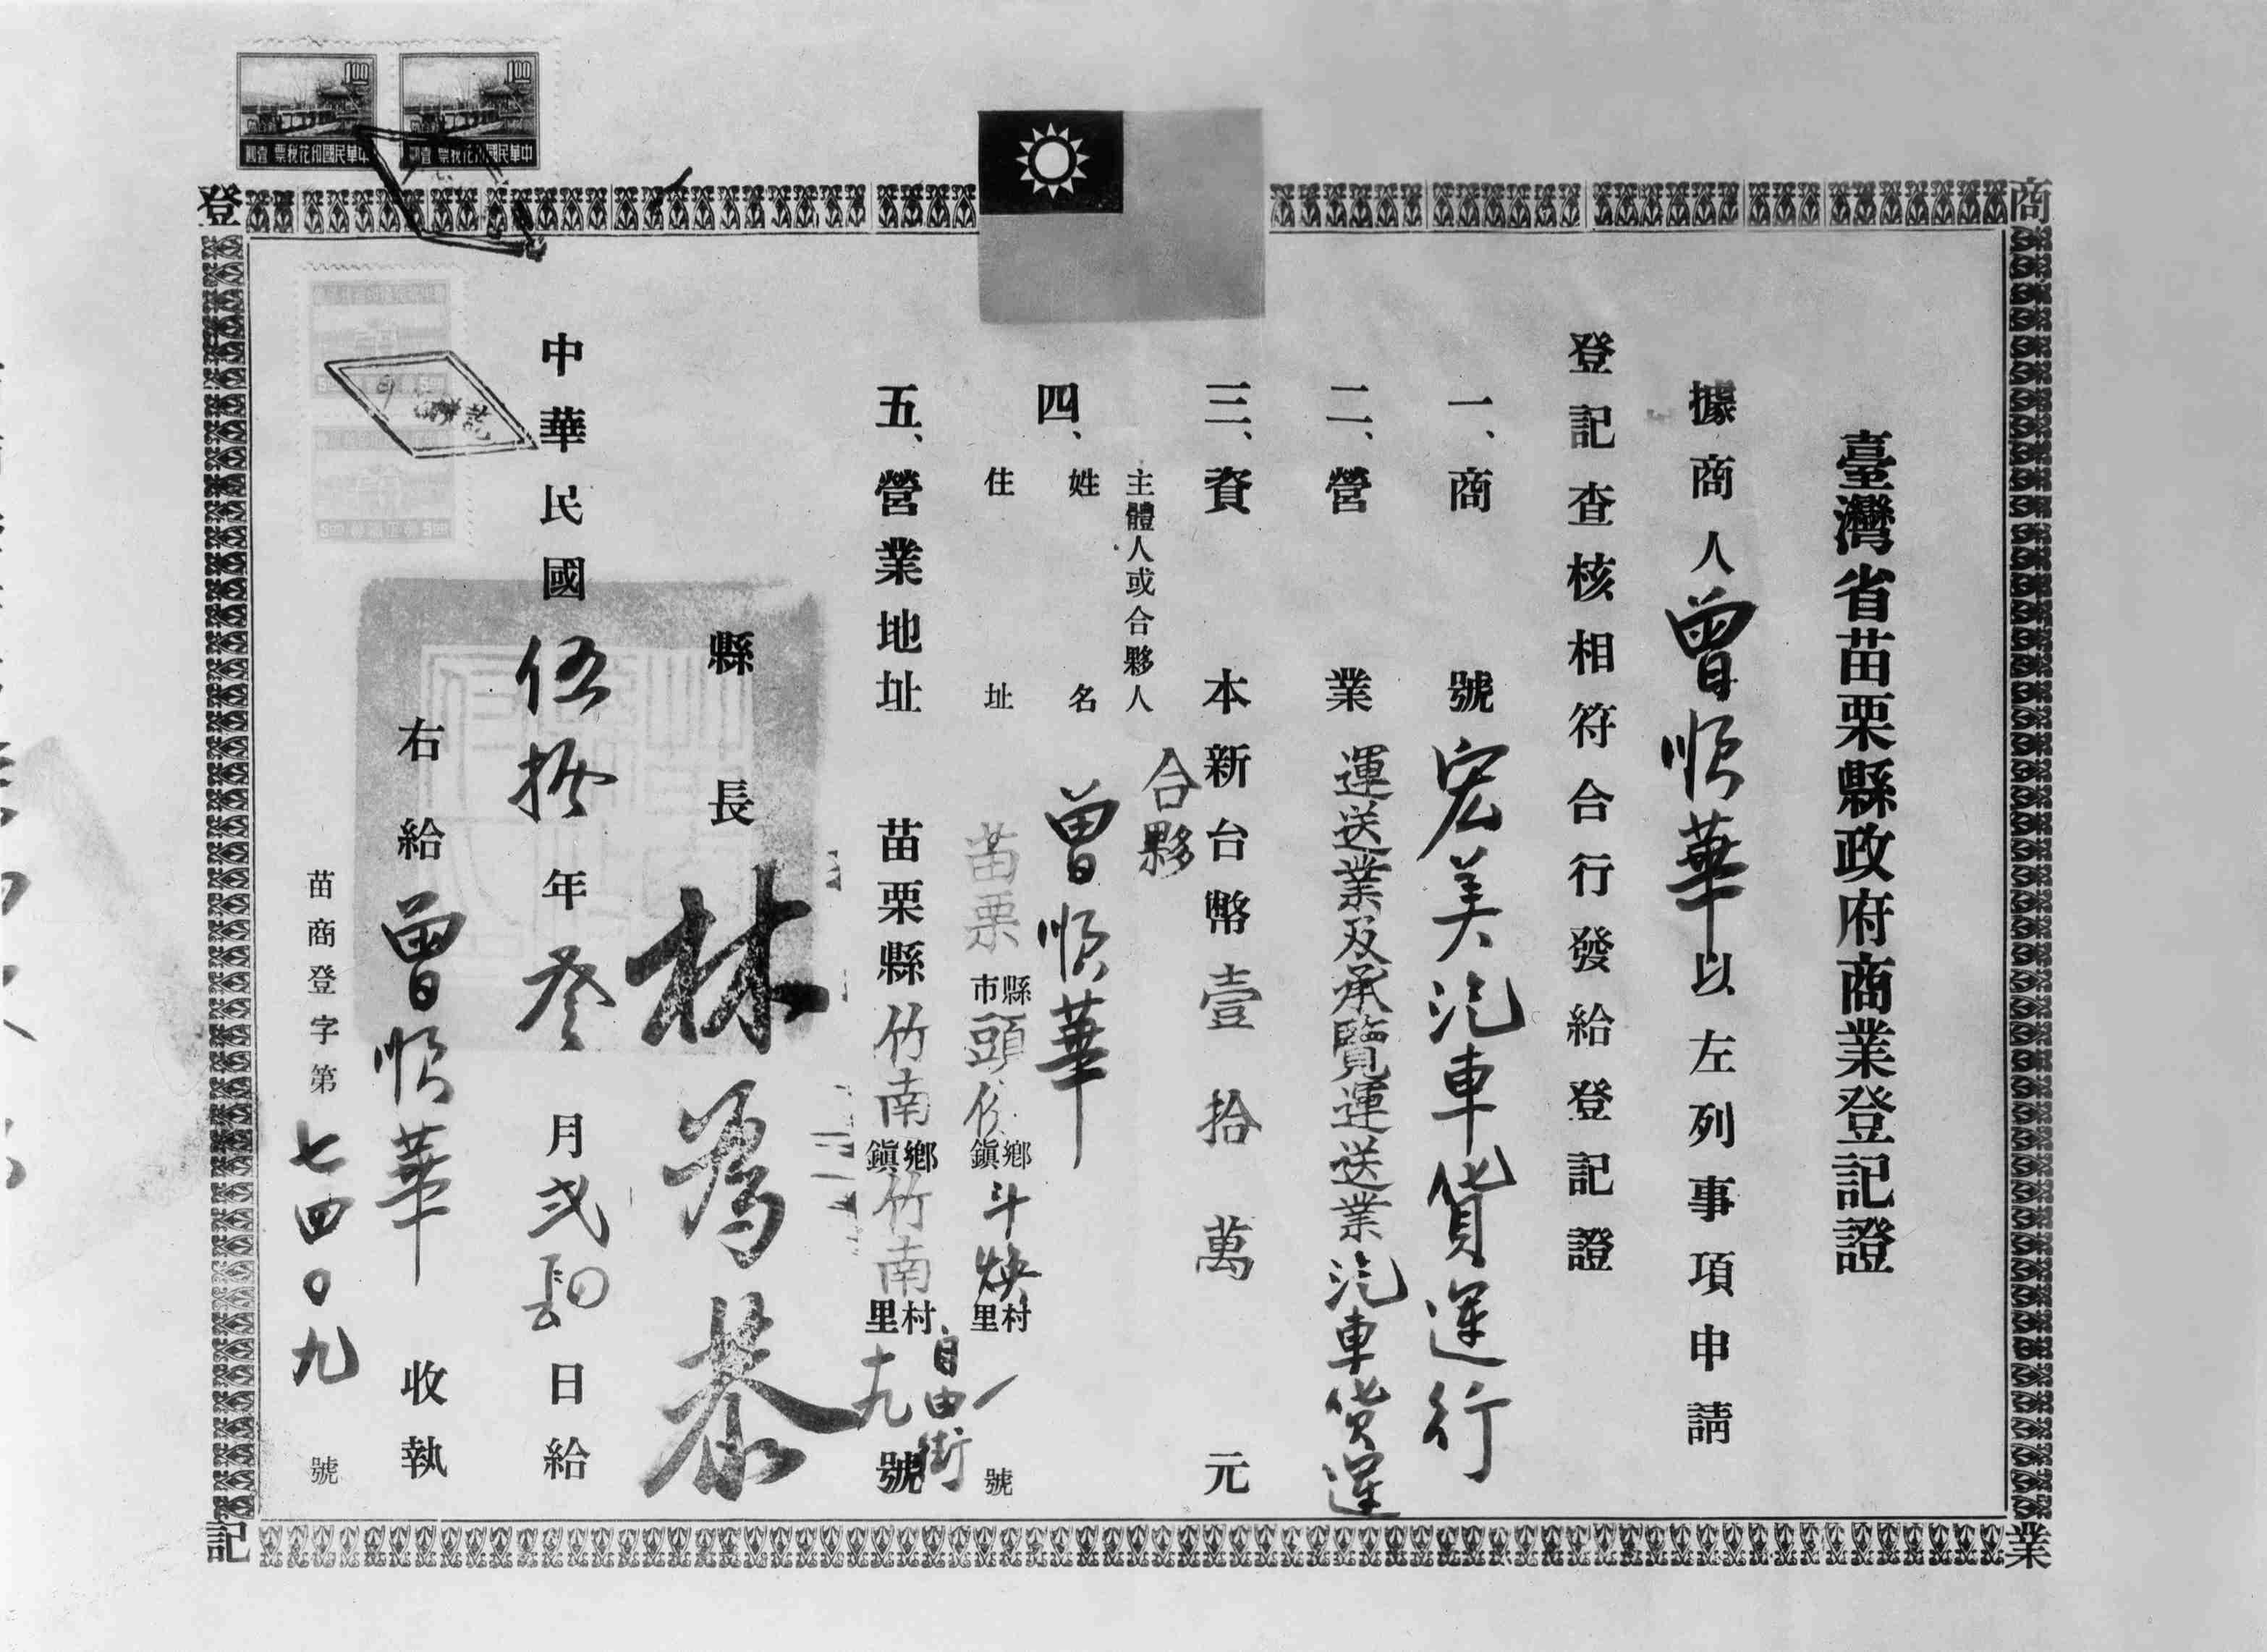 商業登記
臺灣省苗栗縣政府商業登記證
據商人曾順華以左列事項申請
登記查核相符合行發給登記證
一、商號宏美汽車貨運行
二、營業運送業及承覽運送業汽車貨運
三、資本新台幣壹拾萬元
四、主體人或合夥人合夥
姓名曾順華
住址苗栗縣市頭份鄉鎮斗煥村里一號
五、營業地址苗栗縣竹南鄉鎮竹南村里自由街十九號
縣長林為恭
中華民國伍拾年叁月弍日給
右給曾順華收執
苗商登字第七四〇九號
1.00
中華民國印花稅票 壹圓
1.00
中華民國印花稅票 壹圓
5.00
5.00